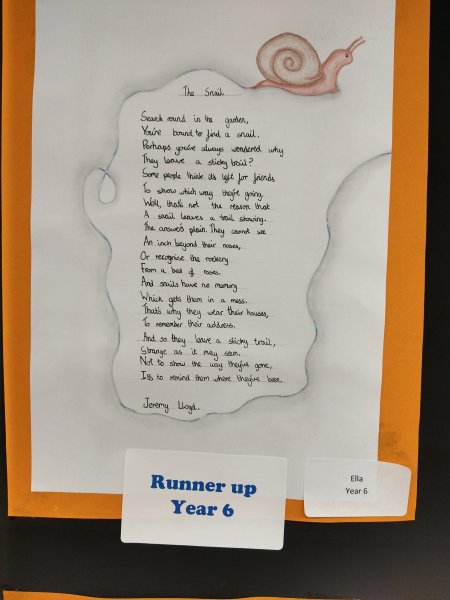 The Snail
Search round in the garden,
You're bound to find a snail.
Perhaps you've always wondered why
They leave a sticky trail?
Some people think it's left for friends
To show which way they're going.
Well, that's not the reason that
A snail leaves a trail showing.
The answer's plain. They cannot see
An inch beyond their noses,
Or recognise the rockery
From a bed of roses.
And snails have no memory
Which gets them in a mess.
That's why they wear their houses,
To remember their address.
And so they leave a sticky trail,
Strange as it may seem.
Not to show the way they've gone,
It's to remind them where they've been.
Jeremy Lloyd.
Runner up
Year 6
Ella
Year 6